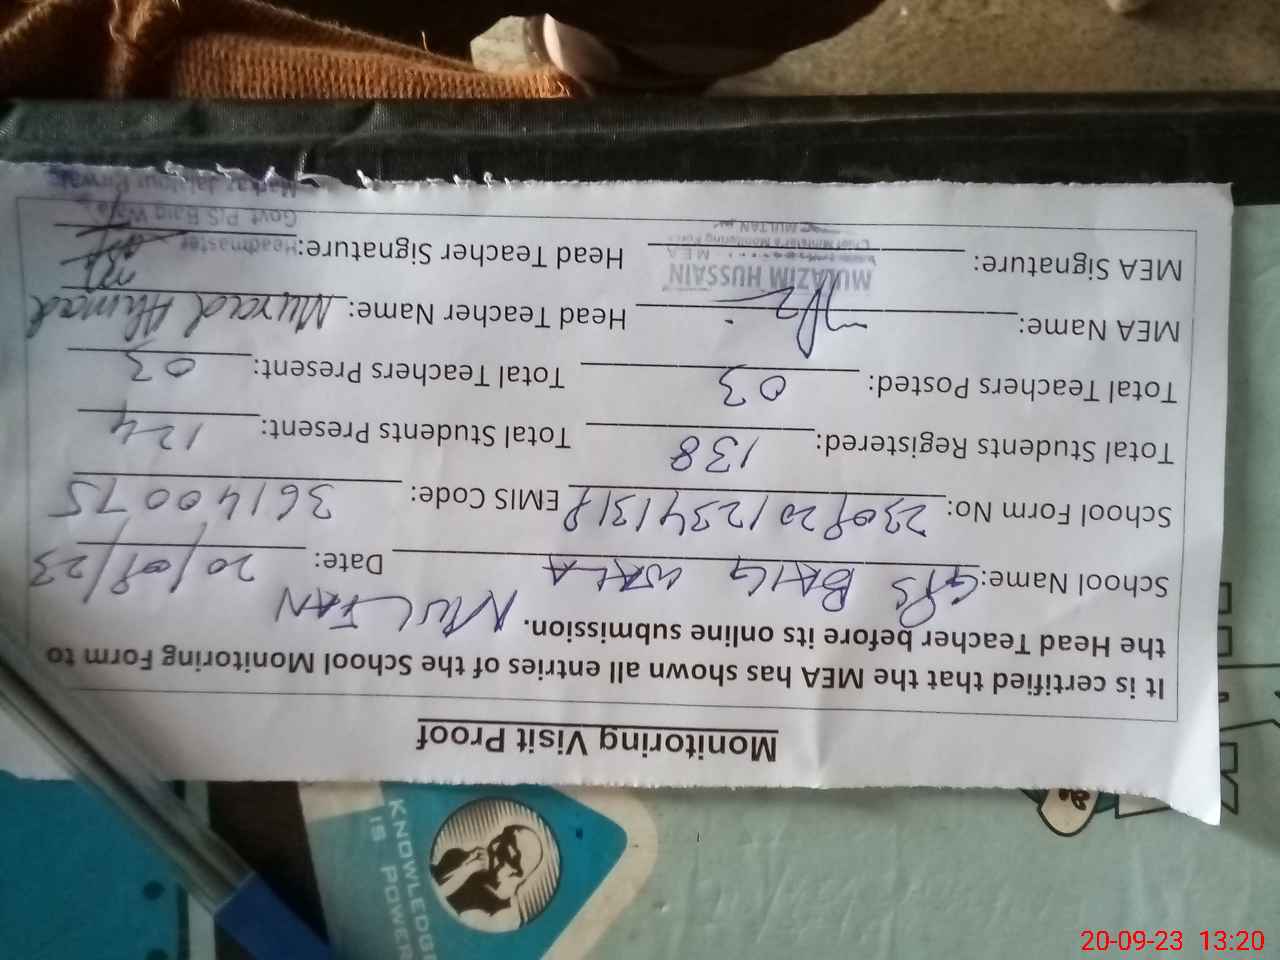 Monitoring Visit Proof
It is certified that the MEA has shown all entries of the School Monitoring Form to
the Head Teacher before its online submission. MULTAN
School Name: GPS BAIG WALA Date: 20/09/23
School Form No: EMIS Code: 36140075
Total Students Registered: 138 Total Students Present: 124
Total Teachers Posted: 03 Total Teachers Present: 03
MEA Name: Head Teacher Name: Murad Ahmad
MULAZIM HUSSAIN
MEA
MEA Signature: Head Teacher Signature: Headmaster
MULTAN Govt P/S Baig Wala
Markaz Jalalpur Pirwala
KNOWLEDGE
IS POWER
20-09-23 13:20